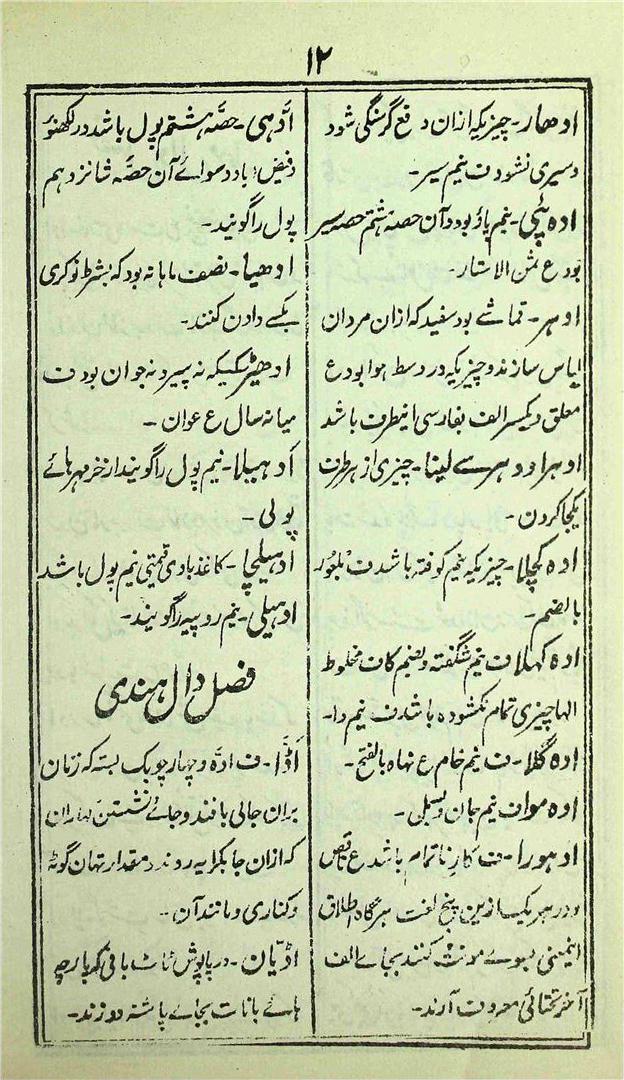 ۱۲
ادهار۔ چیزیکه ازان دفع گرسنگی شود
و سیری نشود ت نیم سیر۔
اده پئی۔ نیم پاؤ بود و آن حصه هشتم حصه سیر
بود ع ثمن الاستار۔
اوهر۔ قماشے بود سفید که ازان مردان
لباس سازند و چیزیکه در وسط هوا بود ع
معلق و بکسر الف بفارسی اینطرف باشد
اوهر اودهر سے لینا۔ چیزی از هر طرف
یکجا کردن۔
اده کچلا۔ چیزیکه نیم کوفته باشد ف بلغور
بالضم۔
اده کهلا ف نیم شگفته و بضم کاف مخلوط
الها چیزی تمام نکشوده باشد ف نیم وا۔
اده گلا۔ ف نیم خام ع نهاه بالفتح۔
اده موا ف نیم جان و بسمل۔
ادهورا۔ ف کار ناتمام باشد ع ناقص
و در هر یک ازین پنج لغت هر گاه اطلاق
اینمعنی بسوے مونث کنند بجاے الف
آخر تحتانی معروف آرند۔
ادّهی۔ حصّه هشتم پول باشد در لکهنؤ
و فیض آباد و سوائے آن حصّه شانزدهم
پول را گویند۔
ادهیا۔ نصف ماهانه بود که بشرط نوکری
بکسے دادن کنند۔
ادهیڑ کسیکه نه پیر و نه جوان بود ف
میانه سال ع عوان۔
ادهیلا۔ نیم پول را گویند از خرمهرهائے
پولی۔
ادهیلچا۔ کاغذ بادی قیمتی نیم پول باشد
ادهیلی۔ نیم روپیه را گویند۔
فصل دال هندی
اڈّا۔ ف ادّه و چهار چوبک بسته که زنان
بران جالی بافند و جائے نشستن کهاران
که ازان جا بکرایه روند و مقدار تهان گوٹه
و کناری و مانند آن۔
اڈیان۔ در پاپوش ٹاٹ بافی که پارچه
هائے بانات بجاے پاشنه دوزند۔